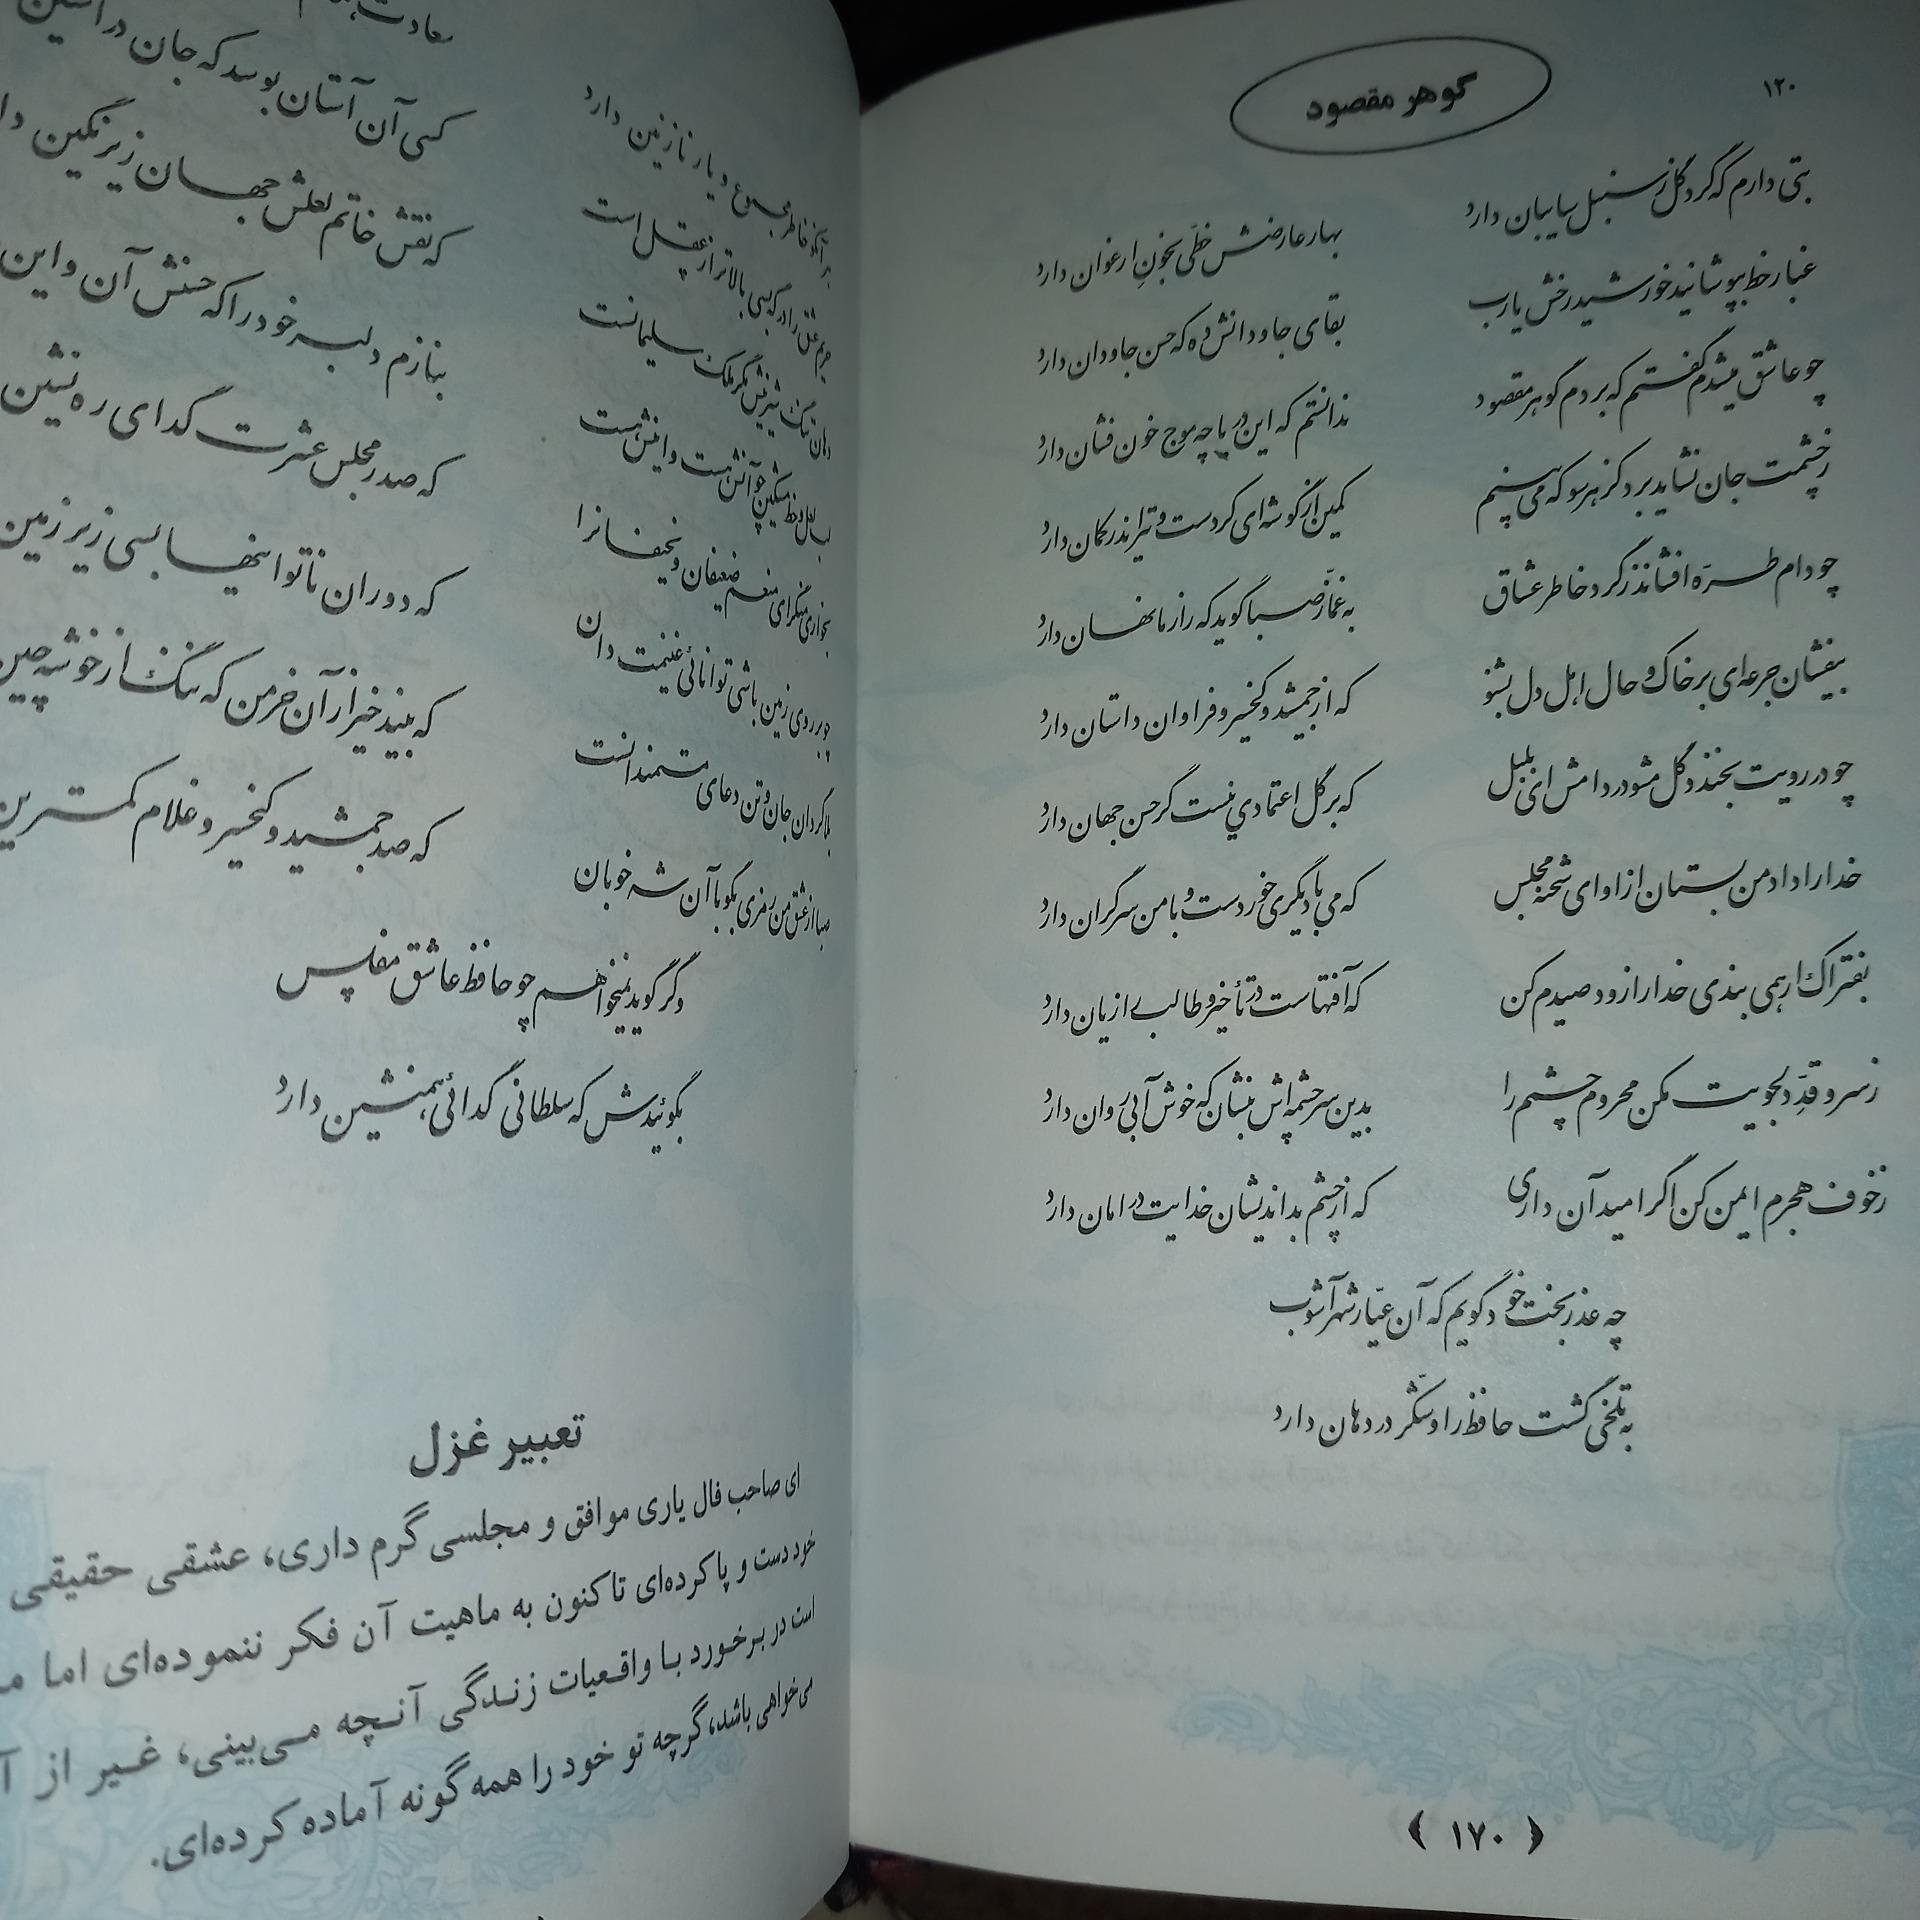 ۱۲۰
گوهر مقصود
بتی دارم که گرد گل ز سنبل سایبان دارد
بهار عارضش خطّی بخون ارغوان دارد
غبار خط بپوشانید خورشید رخش یارب
بقای جاودانش ده که حسن جاودان دارد
چو عاشق میشدم گفتم که بردم گوهر مقصود
ندانستم که این دریا چه موج خون فشان دارد
ز چشمت جان نشاید برد کز هر سو که می‌بینم
کمین از گوشه‌ای کردست و تیر اندر کمان دارد
چو دام طرّه افشاند ز گرد خاطر عشاق
به غمّاز صبا گوید که راز ما نهان دارد
بیفشان جرعه‌ای بر خاک و حال اهل دل بشنو
که از جمشید و کیخسرو فراوان داستان دارد
چو در رویت بخندد گل مشو در دامش ای بلبل
که بر گل اعتمادی نیست گر حسن جهان دارد
خدارا داد من بستان ازاو ای شحنه مجلس
که می با دیگری خوردست و با من سرگران دارد
بفتراک ار همی بندی خدارا زود صیدم کن
که آفتهاست در تأخیر و طالب را زیان دارد
ز سرو قدّ دلجویت مکن محروم چشمم را
بدین سرچشمه‌اش بنشان که خوش آبی روان دارد
ز خوف هجرم ایمن کن اگر امید آن داری
که از چشم بداندیشان خدایت در امان دارد
چه عذر بخت خود گویم که آن عیّار شهرآشوب
به تلخی گشت حافظ را و شکّر در دهان دارد
﴿ ۱۷۰ ﴾
هر آنکو خاطر مجموع و یار نازنین دارد
سعادت
حریم عشق را درگه بسی بالاتر از عقل است
کسی آن آستان بوسد که جان در آستین
دهان تنگ شیرینش مگر ملک سلیمانست
که نقش خاتم لعلش جهان زیر نگین
لب لعل و خط مشکین چو آنش هست و اینش هست
بنازم دلبر خود را که حسنش آن و این
بخواری منگر ای منعم ضعیفان و نحیفانرا
که صدر مجلس عشرت گدای ره نشین
چو بر روی زمین باشی توانائی غنیمت دان
که دوران ناتوانیها بسی زیر زمین
بلاگردان جان و تن دعای مستمندانست
که بیند خیر از آن خرمن که ننگ از خوشه چین
صبا از عشق من رمزی بگو با آن شه خوبان
که صد جمشید و کیخسرو غلام کمترین
وگر گوید نمیخواهم چو حافظ عاشق مفلس
بگوئیدش که سلطانی گدائی همنشین دارد
تعبیر غزل
ای صاحب فال یاری موافق و مجلسی گرم داری، عشقی حقیقی
خود دست و پا کرده‌ای تاکنون به ماهیت آن فکر ننموده‌ای اما
است در برخورد با واقعیات زندگی آنچه می‌بینی، غیر از
می‌خواهی باشد، گرچه تو خود را همه گونه آماده کرده‌ای.